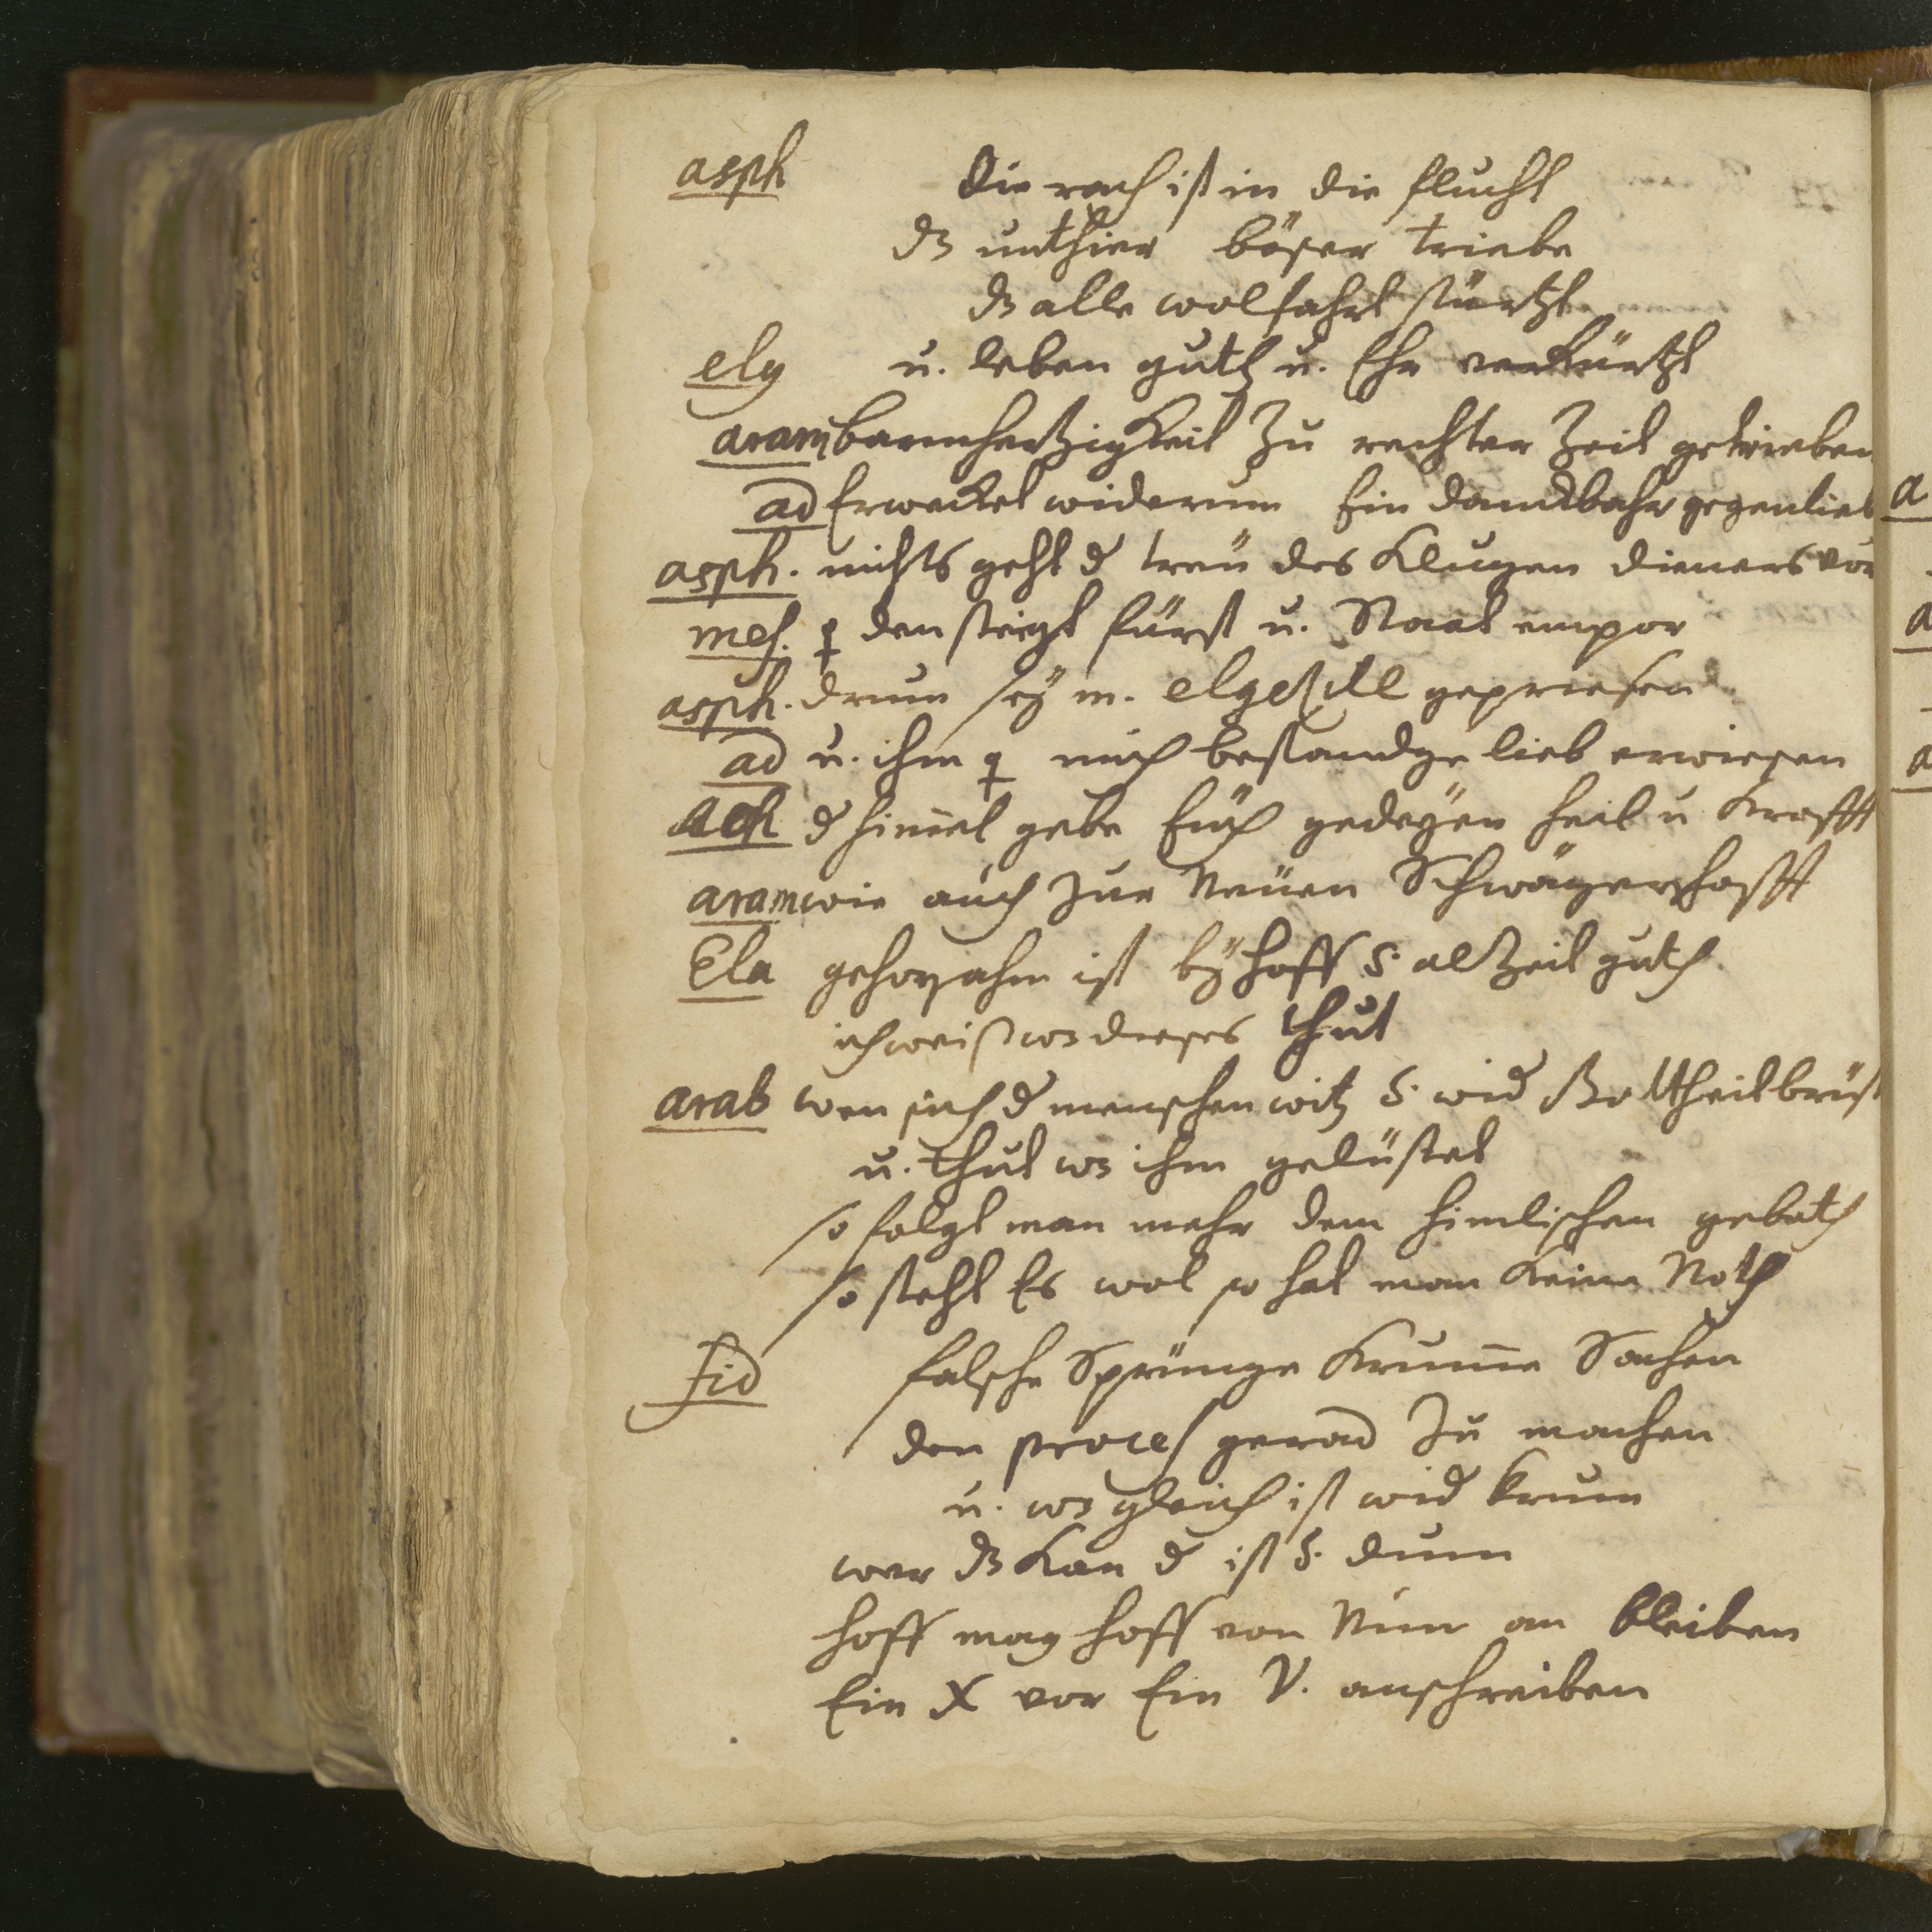 asph die rach ist in die flucht
dz unthier böser triebe
dz alle wolfahrt stürtzt
elg u. leben guth u. Ehr verkürtzt
aram barmhertzigkeit zu rechter Zeit getrieben
ad Erwecket widerum Ein danckbahr gegenlieb
asph. nichts geht d treü des klugen dieners vor
mes. den steigt fürst u. Staat empor
asph. drum seÿ m. gepriesen
ad u. ihm mich bestandge lieb erwiesen
ach d himel gebe Eüch gedeÿen heil u krafft
aram wie auch zur Neüen Schwägerschafft
Ela gehorsahm ist beÿ hoff altzeit guth
ich weiß wz dieses thut
arab wen sich d menschen witz wid brüst
u. thut wz ihm gelüstet
so folgt man mehr dem himlischen geboth
so steht Es wol so hat man keine Noth
fid falsche Sprünge krume Sachen
den proces gerad zu machen
u. wz gleich ist wid krum
wer dz kan d ist dum
hoff mag hoff von Nun an bleiben
Ein X vor Ein V. anschreiben
a
a
a